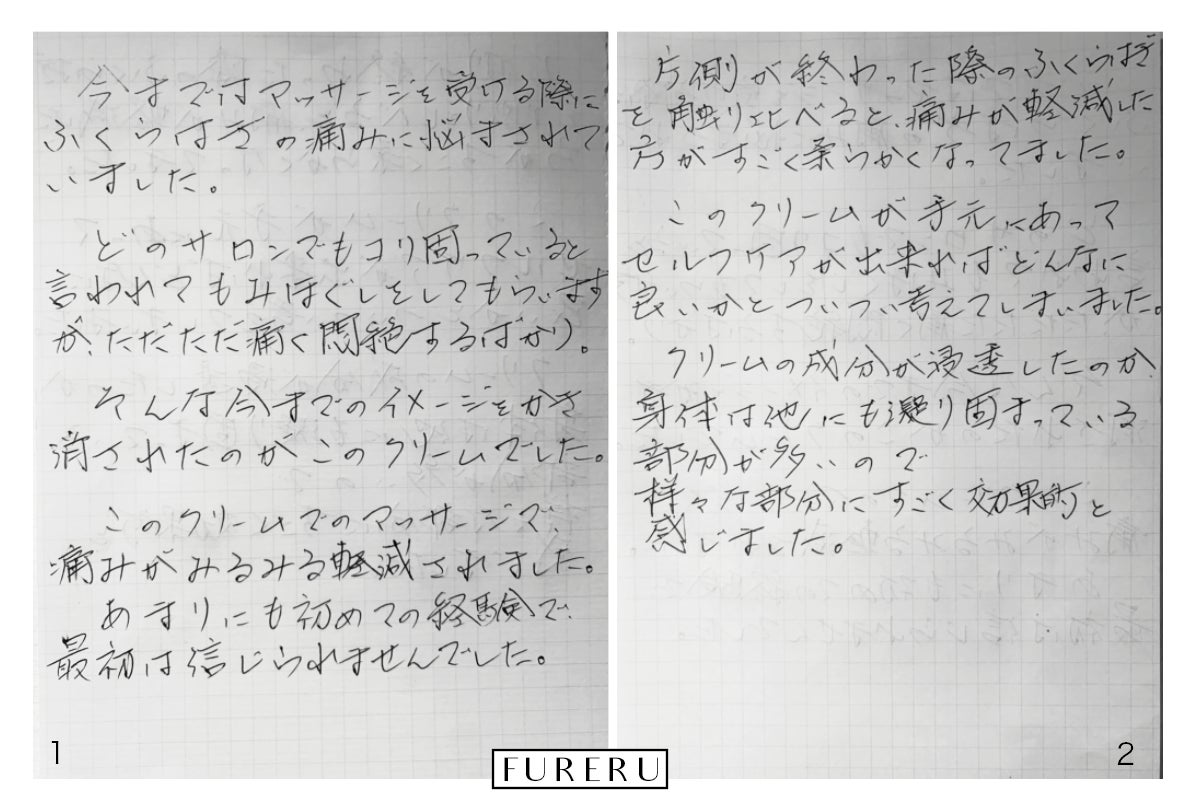 今まではマッサージを受ける際に
ふくらはぎの痛みに悩まされて
いました。
どのサロンでもコリ固っていると
言われてもみほぐしをしてもらいます
が、ただただ痛く悶絶するばかり。
そんな今までのイメージをかき
消されたのがこのクリームでした。
このクリームでのマッサージで、
痛みがみるみる軽減されました。
あまりにも初めての経験で、
最初は信じられませんでした。
1
片側が終わった際のふくらはぎ
を触り比べると、痛みが軽減した
方がすごく柔らかくなってました。
このクリームが手元にあって
セルフケアが出来ればどんなに
良いかとついつい考えてしまいました。
クリームの成分が浸透したのか、
身体は他にも凝り固まっている
部分が多いので
様々な部分にすごく効果的と
感じました。
2
FURERU